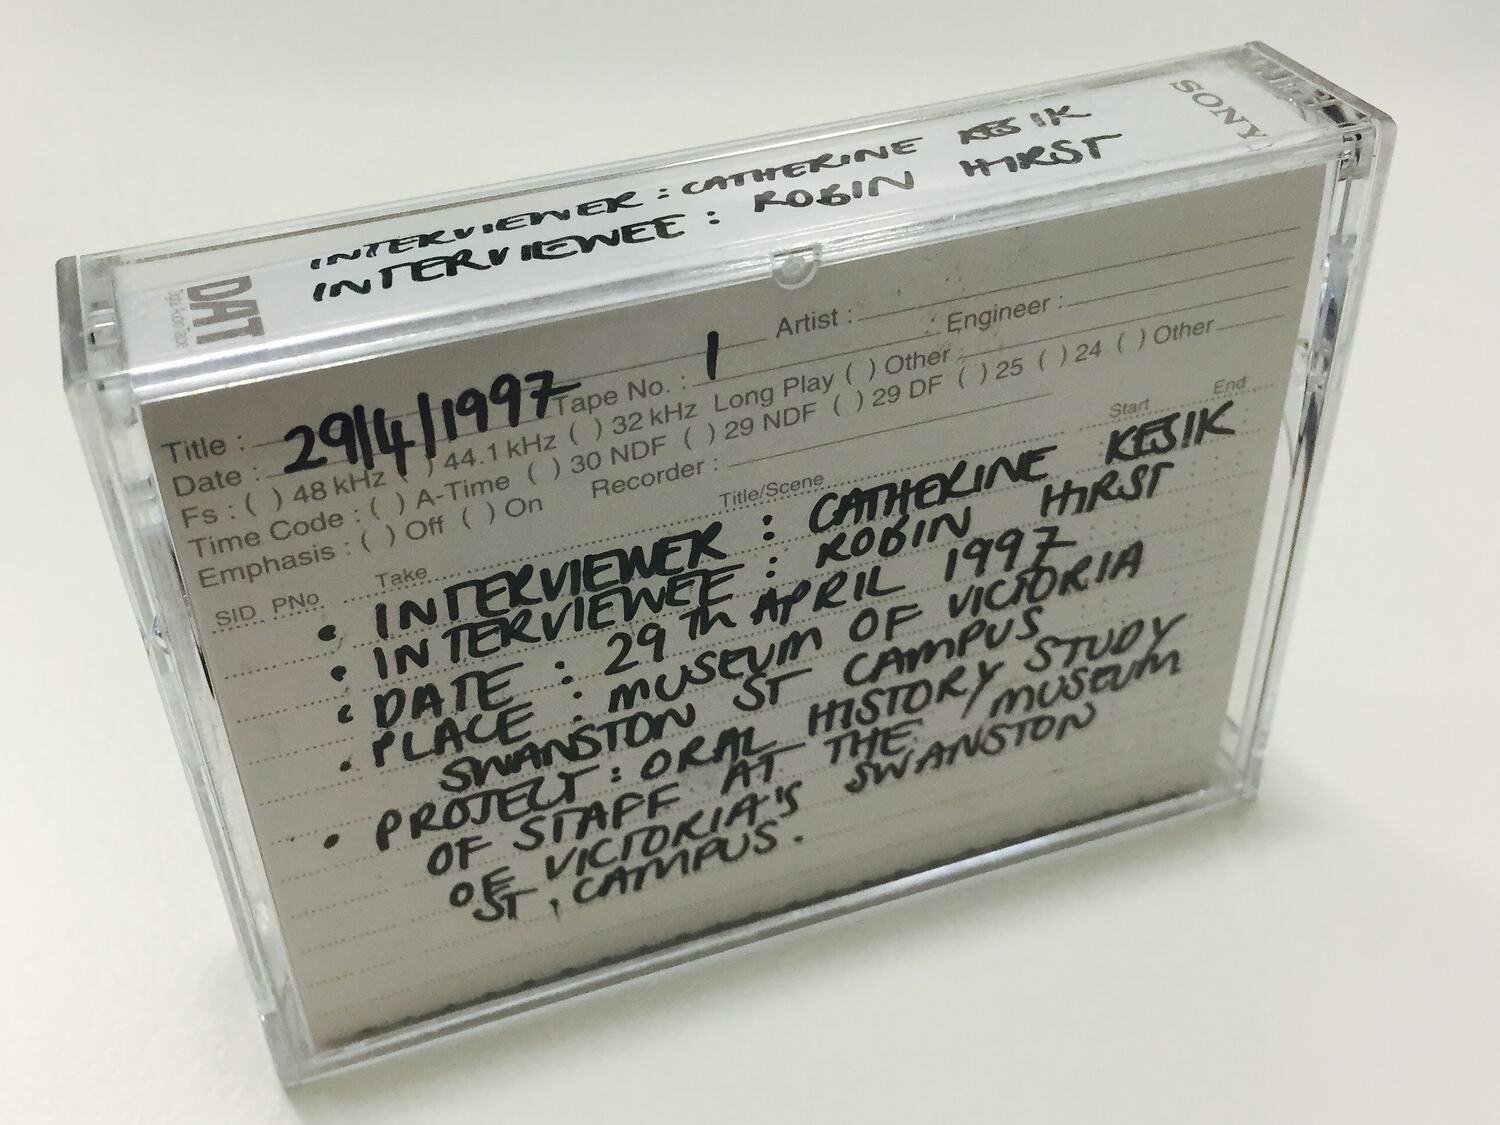 SONY
INTERVIEWER : CATHERINE KESIK
INTERVIEWEE : ROBIN HIRST
DAT
Digital Audio Tape
Title : Artist :
Date : 29/4/1997 Tape No. : 1 Engineer :
Fs : ( ) 48 kHz ( ) 44.1 kHz ( ) 32 kHz Long Play ( ) Other
Time Code : ( ) A-Time ( ) 30 NDF ( ) 29 NDF ( ) 29 DF ( ) 25 ( ) 24 ( ) Other
Emphasis : ( ) Off ( ) On Recorder :
SID PNo Take Title/Scene Start End
• INTERVIEWER : CATHERINE KESIK
• INTERVIEWEE : ROBIN HIRST
• DATE : 29Th APRIL 1997
• PLACE : MUSEUM OF VICTORIA
SWANSTON ST CAMPUS
• PROJECT : ORAL HISTORY STUDY
OF STAFF AT THE MUSEUM
OF VICTORIA'S SWANSTON
ST. CAMPUS.